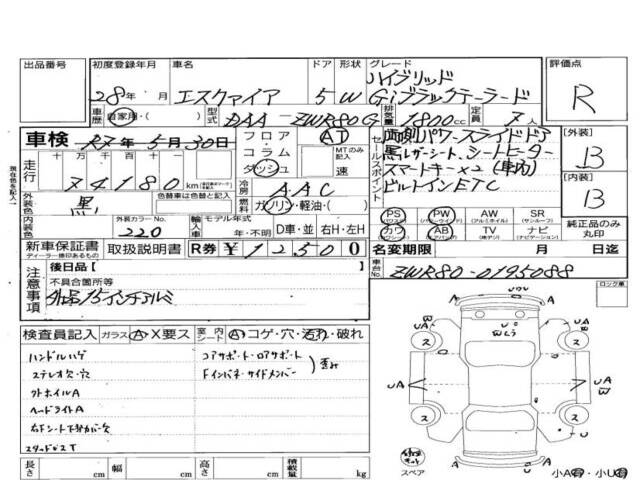 出品番号 初度登録年月 車名 ドア 形状 グレード 評価点
28年 月 エスクァイア 5 W ハイブリッド Gi ブラックテーラード R
車歴 自家用・( ) 型式 DAA-ZWR80G 排気量 1800cc 定員 7人
車検 R7年5月30日 フロア・コラム・ダッシュ AT MTのみ記入 速
走行 十万 万 千 百 十 74180 km 冷房 AAC
外装色 黒 燃料 ガソリン・軽油・( )
内装色 外装カラーNo. 220 輸入車 モデル年式 年・不明 D車・並 右H・左H
新車保証書 ディーラー様印あるもの 取扱説明書 R券 ¥12500
セールスポイント 両側パワースライドドア
黒レザーシート、シートヒーター
スマートキー×2(車内)
ビルトインETC
【外装】 B
【内装】 B
PS (パワステ) PW (パワーウィンド) AW (アルミホイル) SR (サンルーフ) 純正品のみ丸印
カワ AB (エアバッグ) TV (地デジ) ナビ (ナビゲーション)
名変期限 月 日迄
車台No. ZWR80-0195088
注意事項 後日品【 】
不具合箇所等
外品15インチアルミ
ロック車
検査員記入 ガラス A・X要ス 室内シート A・コゲ・穴・汚れ・破れ
ハンドルハゲ コアサポート・ロアサポート
ステレオ欠・穴 Fインパネ・サイドメンバー 歪み
ヘッドライトA
長さ cm 幅 cm 高さ cm 積載量 kg
スペア 小A有・小U有
現在色を記入